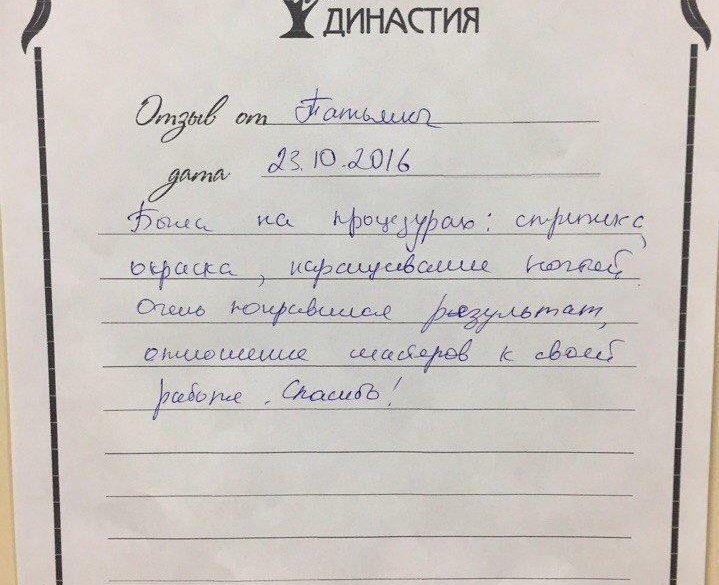 ДИНАСТИЯ
Отзыв от Татьяны
дата 23.10.2016
Была на процедурах: стрижка,
окраска, наращивание ногтей.
Очень понравился результат,
отношение мастеров к своей
работе. Спасибо!